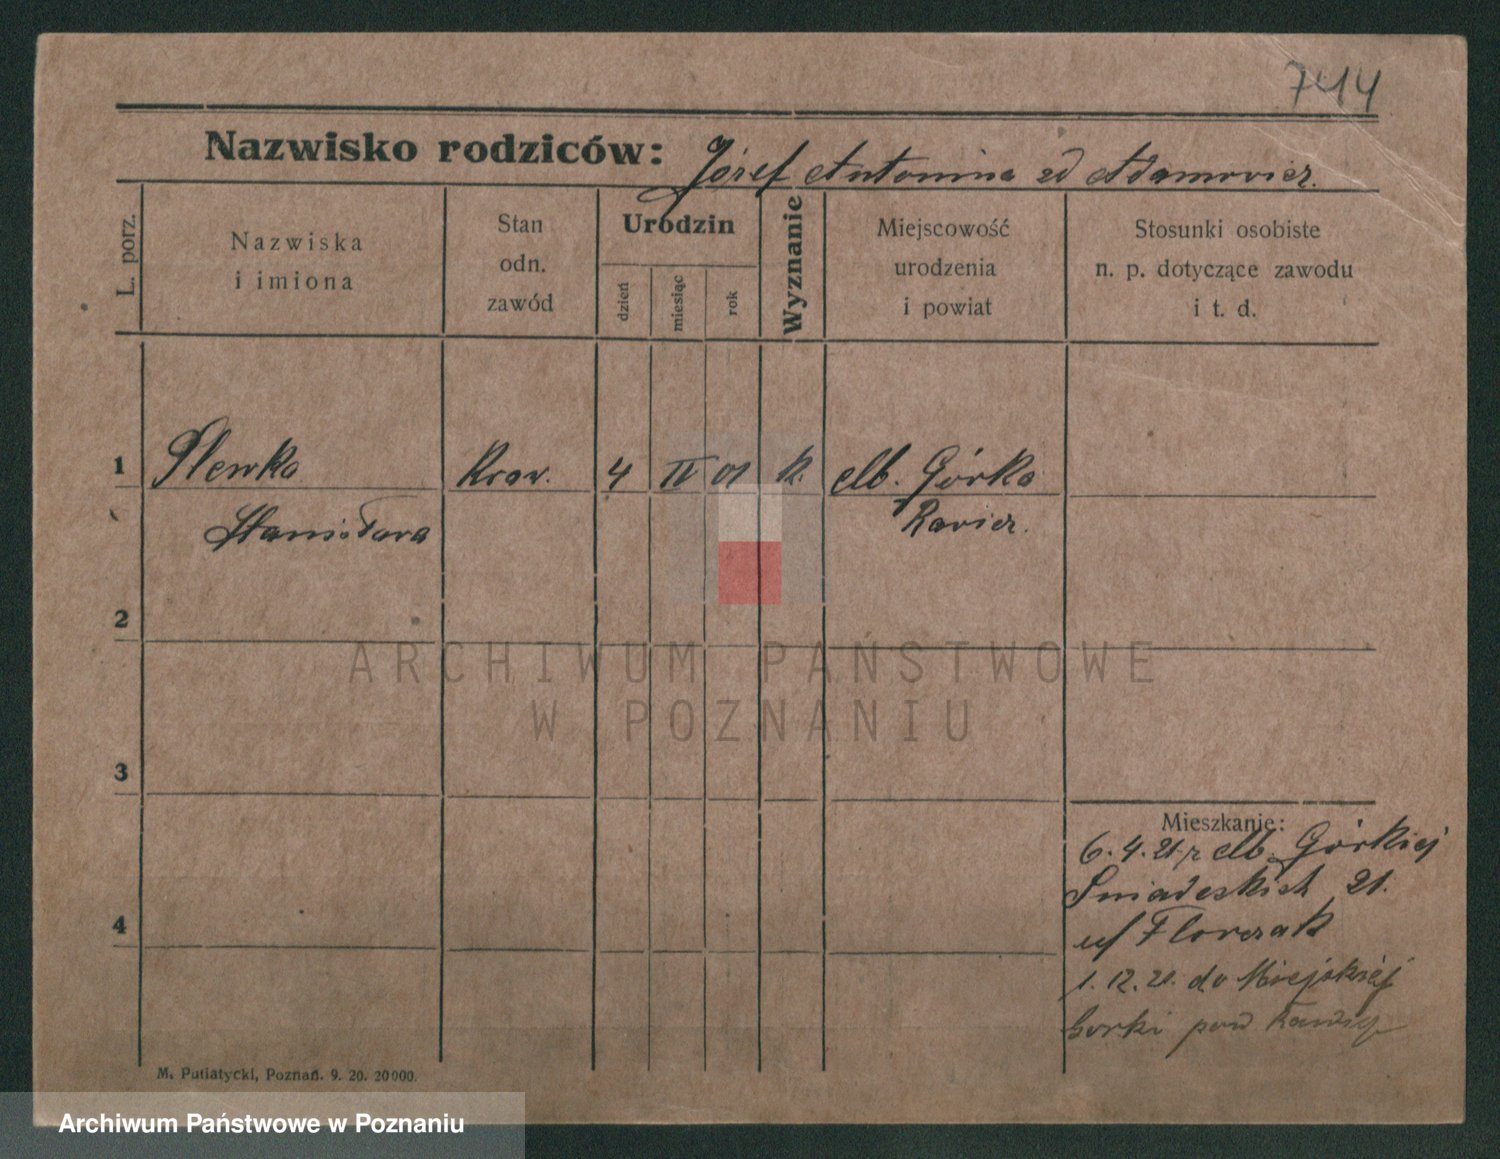 744
Nazwisko rodziców: Józef Antonina zd Adamowicz.
L. porz.
Nazwiska
i imiona
Stan
odn.
zawód
Urodzin
dzień
miesiąc
rok
Wyznanie
Miejscowość
urodzenia
i powiat
Stosunki osobiste
n. p. dotyczące zawodu
i t. d.
1 Plewka Kraw. 4 IV 01 k. Mb. Górka
Stanisława Rawicz.
2
3
4
ARCHIWUM PAŃSTWOWE
W POZNANIU
Mieszkanie:
6. 4. 21 z Mb. Górkiej
Śniadeckich 21.
u/ Florczak
1. 12. 21. do Miejskiej
Gorki pow
M. Putiatycki, Poznań. 9. 20. 20000.
Archiwum Państwowe w Poznaniu